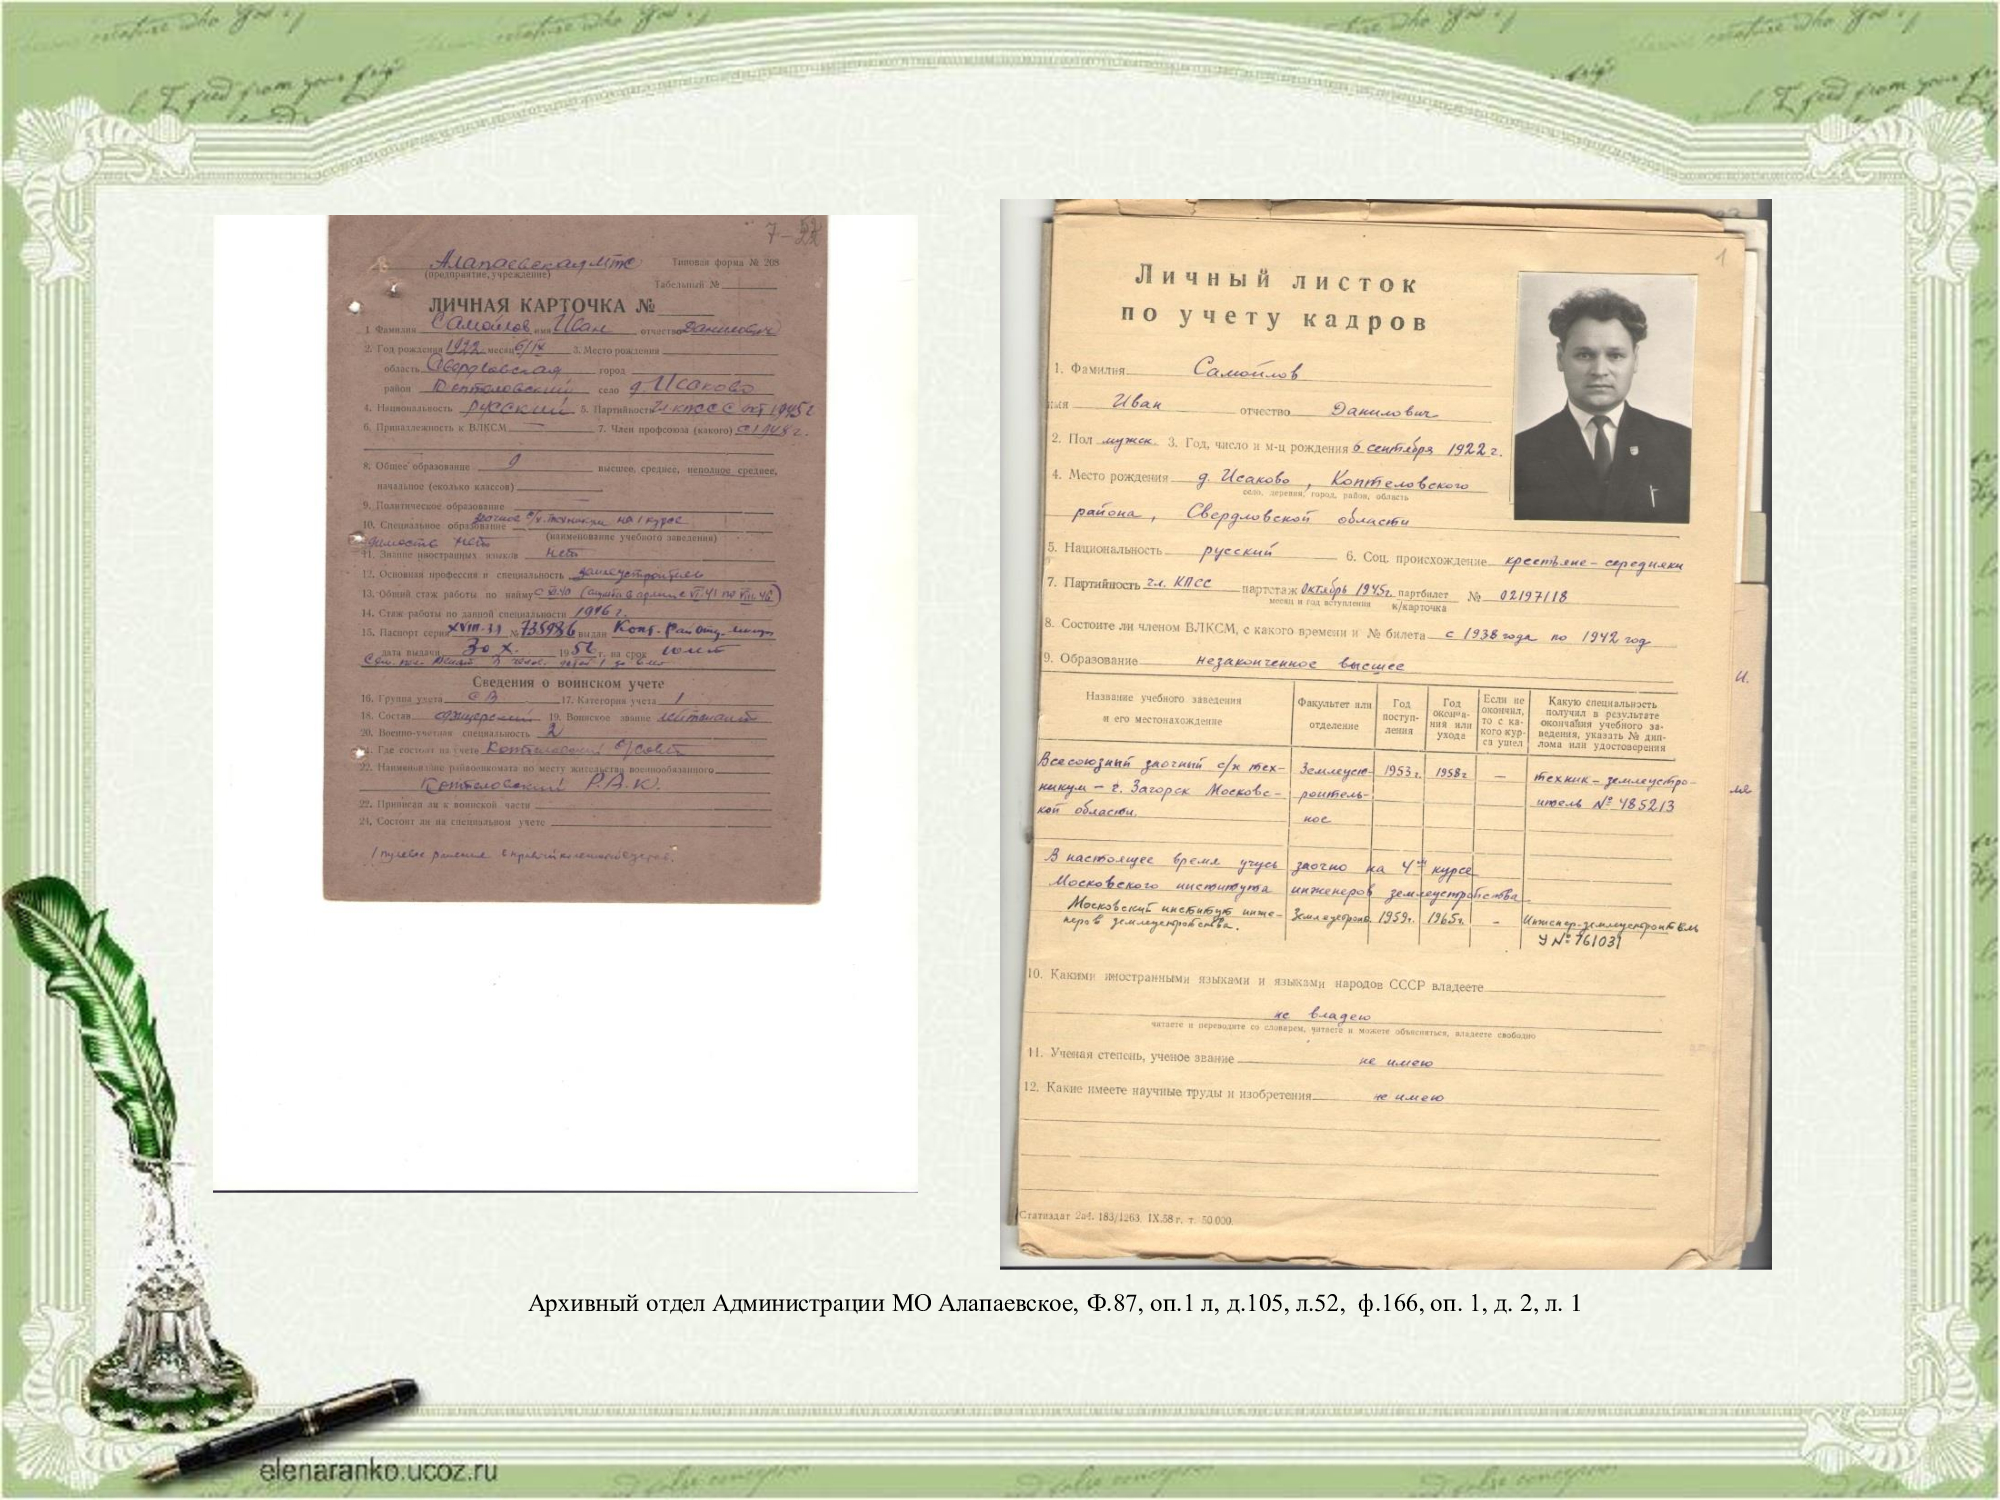 7-52
Алапаевская МТС
Типовая форма № 208
(предприятие, учреждение)
Табельный №
ЛИЧНАЯ КАРТОЧКА №
1. Фамилия Самойлов имя Иван отчество Данилович
2. Год рождения 1922 месяц 6/IX 3. Место рождения
область Свердловская город
район Коптеловский село д. Исаково
4. Национальность русский 5. Партийность чл. КПСС с окт 1945 г
6. Принадлежность к ВЛКСМ — 7. Член профсоюза (какого) с 1948 г.
8. Общее образование 9 высшее, среднее, неполное среднее,
начальное (сколько классов)
9. Политическое образование —
10. Специальное образование заочное с/х техникум на 1 курсе
(наименование учебного заведения)
11. Знание иностранных языков нет
12. Основная профессия и специальность землеустроитель
13. Общий стаж работы по найму
14. Стаж работы по данной специальности 1946 г.
15. Паспорт серия XVIII-ЗЛ № 735986 выдан
дата выдачи 30 X. 1956 г. на срок
Сведения о воинском учете
16. Группа учета СА 17. Категория учета 1
18. Состав офицерский 19. Воинское звание лейтенант
20. Военно-учетная специальность 2
21. Где состоит на учете Коптеловский с/совет
22. Наименование райвоенкомата по месту жительства военнообязанного
Коптеловский Р.В.К.
22. Приписан ли к воинской части
24. Состоит ли на специальном учете
1
Личный листок
по учету кадров
1. Фамилия Самойлов
имя Иван отчество Данилович
2. Пол мужск. 3. Год, число и м-ц рождения 6 сентября 1922 г.
4. Место рождения д. Исаково, Коптеловского
село, деревня, город, район, область
района, Свердловской области
5. Национальность русский 6. Соц. происхождение крестьяне-середняки
7. Партийность чл. КПСС партстаж октябрь 1945г. партбилет № 02197118
месяц и год вступления к/карточка
8. Состоите ли членом ВЛКСМ, с какого времени и № билета с 1938 года по 1942 год
9. Образование незаконченное высшее
Название учебного заведения и его местонахождение
Факультет или отделение
Год поступ-ления
Год оконча-ния или ухода
Если не окончил, то с ка-кого кур-са ушел
Какую специальность получил в результате окончания учебного за-ведения, указать № дип-лома или удостоверения
Всесоюзный заочный с/х тех- Землеуст- 1953 г. 1958 г — техник-землеустро-
никум — г. Загорск Московс- роитель- итель № 485213
кой области. ное
В настоящее время учусь заочно на 4ом курсе
Московского института инженеров землеустройства
Московский институт инже- Землеустроит. 1959г. 1965г. – Инженер-землеустроитель
неров землеустройства. У № 761031
10. Какими иностранными языками и языками народов СССР владеете
не владею
читаете и переводите со словарем, читаете и можете объясняться, владеете свободно
11. Ученая степень, ученое звание не имею
12. Какие имеете научные труды и изобретения не имею
Статиздат 2а4. 183/1263. IX.58 г. т. 50.000.
Архивный отдел Администрации МО Алапаевское, Ф.87, оп.1 л, д.105, л.52, ф.166, оп. 1, д. 2, л. 1
elenaranko.ucoz.ru